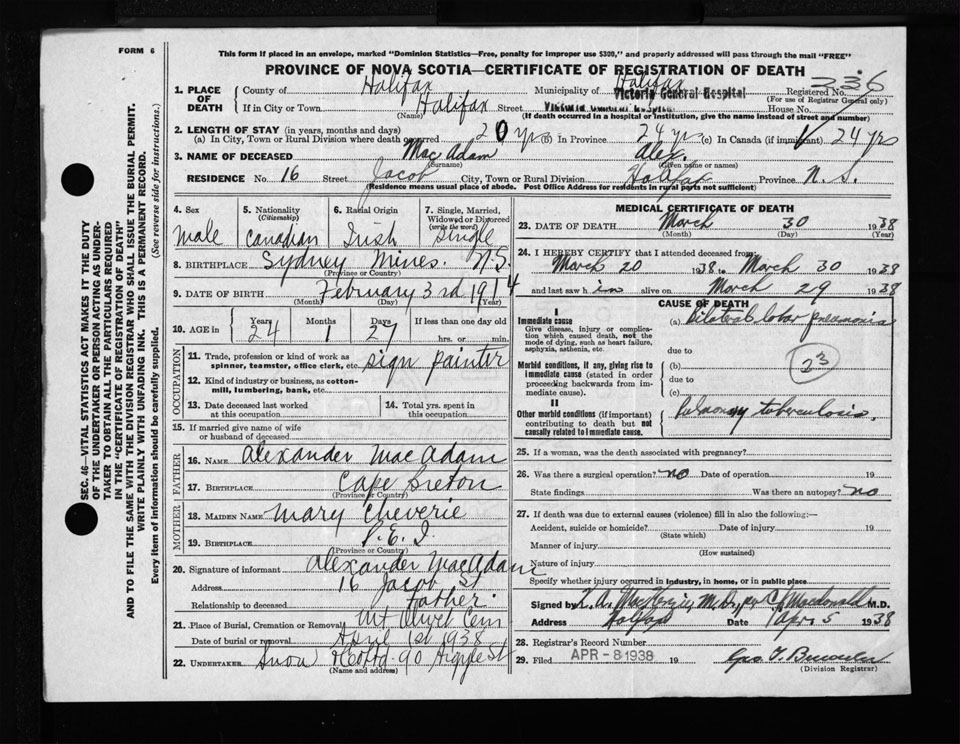 FORM 6
This form if placed in an envelope, marked "Dominion Statistics—Free, penalty for improper use $300," and properly addressed will pass through the mail "FREE"
PROVINCE OF NOVA SCOTIA—CERTIFICATE OF REGISTRATION OF DEATH
236
1. PLACE OF DEATH
County of Halifax Municipality of Halifax Victoria General Hospital Registered No.
(For use of Registrar General only)
If in City or Town Halifax Street Victoria General Hospital House No.
(Name) (If death occurred in a hospital or institution, give the name instead of street and number)
2. LENGTH OF STAY (in years, months and days)
(a) In City, Town or Rural Division where death occurred 20 yrs (b) In Province 24 yrs (c) In Canada (if immigrant) 24 yrs
3. NAME OF DECEASED Mac Adam Alex.
(Surname) (Given name or names)
RESIDENCE No. 16 Street Jacob City, Town or Rural Division Halifax Province N. S.
(Residence means usual place of abode. Post Office Address for residents in rural parts not sufficient)
4. Sex
male
5. Nationality
(Citizenship)
Canadian
6. Racial Origin
Irish
7. Single, Married, Widowed or Divorced
(write the word)
Single
8. BIRTHPLACE Sydney Mines. N.S.
(Province or Country)
9. DATE OF BIRTH February 3rd 1914
(Month) (Day) (Year)
10. AGE in
Years Months Days If less than one day old
24 1 27 hrs. or min.
OCCUPATION
11. Trade, profession or kind of work as spinner, teamster, office clerk, etc. Sign painter
12. Kind of industry or business, as cotton-mill, lumbering, bank, etc.
13. Date deceased last worked at this occupation
14. Total yrs. spent in this occupation
15. If married give name of wife or husband of deceased
FATHER
16. NAME Alexander Mac Adam
17. BIRTHPLACE Cape Breton
(Province or Country)
MOTHER
18. MAIDEN NAME Mary Cheverie
19. BIRTHPLACE P. E. I.
(Province or Country)
20. Signature of informant Alexander MacAdam
Address 16 Jacob St
Relationship to deceased Father.
21. Place of Burial, Cremation or Removal Mt Olivet Cem
Date of burial or removal April 1st 1938
22. UNDERTAKER Snow & Co Ltd. 90 Argyle St
(Name and address)
MEDICAL CERTIFICATE OF DEATH
23. DATE OF DEATH March 30 1938
(Month) (Day) (Year)
24. I HEREBY CERTIFY that I attended deceased from:
March 20 1938 to March 30 1938
and last saw h im alive on March 29 1938
CAUSE OF DEATH
I
Immediate cause (a) Bilateral lobar pneumonia
Give disease, injury or complication which caused death, not the mode of dying, such as heart failure, asphyxia, asthenia, etc.
due to
23
Morbid conditions, if any, giving rise to immediate cause (stated in order proceeding backwards from immediate cause).
(b)
due to
(c)
II
Other morbid conditions (if important) contributing to death but not causally related to immediate cause.
Pulmonary tuberculosis.
25. If a woman, was the death associated with pregnancy?
26. Was there a surgical operation? no Date of operation 19
State findings Was there an autopsy? no
27. If death was due to external causes (violence) fill in also the following:—
Accident, suicide or homicide? Date of injury 19
(State which)
Manner of injury
(How sustained)
Nature of injury
Specify whether injury occurred in industry, in home, or in public place
Signed by M.D., per C. Macdonald M.D.
Address Halifax Date Apr 5 1938
28. Registrar's Record Number
29. Filed APR - 8 1938 19 Geo.
(Division Registrar)
SEC. 46—VITAL STATISTICS ACT MAKES IT THE DUTY
OF THE UNDERTAKER OR PERSON ACTING AS UNDER-
TAKER TO OBTAIN ALL THE PARTICULARS REQUIRED
IN THE "CERTIFICATE OF REGISTRATION OF DEATH"
AND TO FILE THE SAME WITH THE DIVISION REGISTRAR WHO SHALL ISSUE THE BURIAL PERMIT.
WRITE PLAINLY WITH UNFADING INK. THIS IS A PERMANENT RECORD.
Every item of information should be carefully supplied. (See reverse side for instructions.)